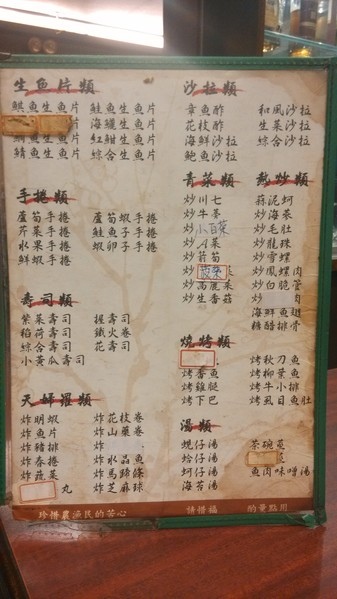 生魚片類
旗魚生魚片
鮭魚生魚片
海鱺生魚片
鯛魚生魚片
紅魽生魚片
鯖魚生魚片
綜合生魚片
手捲類
蘆筍菜手捲
蘆筍蝦手捲
芹菜手捲
鮭魚手捲
水果手捲
蝦卵手捲
鮮蝦手捲
魚子手捲
壽司類
紫菜壽司
握壽司
稻荷壽司
鐵火卷
綜合壽司
花壽司
小黃瓜壽司
天婦羅類
炸明蝦
炸花枝卷
炸魚片
炸山藥卷
炸豬排
炸
炸春捲
炸水晶魚
炸蔬菜
炸馬蹄條
丸
炸芝麻球
沙拉類
章魚酢
和風沙拉
花枝酢
生菜沙拉
海鮮沙拉
綜合沙拉
鮑魚沙拉
青菜類
炒川七
炒牛蒡
炒小白菜
炒A菜
炒箭筍
炒菠菜
炒高麗菜
炒生香菇
熱炒類
蒜泥蚵
炒海菜
炒毛肚
炒龍珠
炒雪螺
炒鳳螺肉
炒白脆管
炒 肉
海鮮魚翅
糖醋排骨
燒烤類
烤秋刀魚
烤柳葉魚
烤香魚
烤牛小排
烤雞腿
烤虱目魚肚
烤下巴
湯類
蜆仔湯
茶碗蒸
蛤仔湯
蚵仔湯
魚肉味噌湯
海苔湯
珍惜農漁民的苦心
請惜福
酌量點用